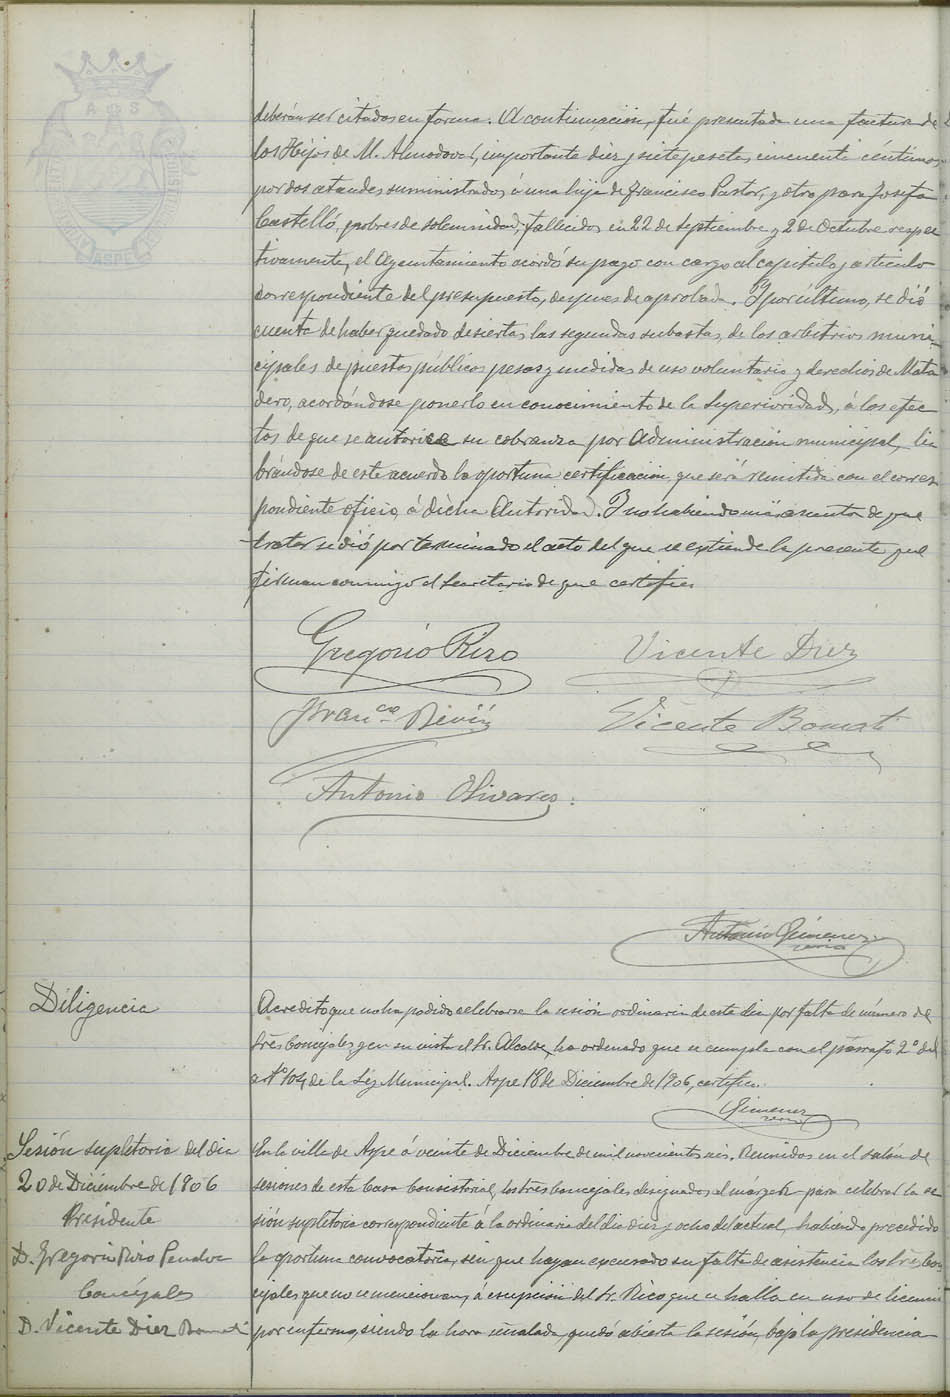 deberán ser citados en forma. A continuación, fué presentada una factura de
los Hijos de M. Almodovar, importante diez y siete pesetas cincuenta céntimos,
por dos ataudes suministrados á una hija de Francisco Pastor, y otro para Josefa
Castelló, pobres de solemnidad, fallecidos en 22 de Septiembre y 2 de Octubre respec
tivamente, el Ayuntamiento acordó su pago con cargo al capítulo y artículo
correspondiente del presupuesto, despues de aprobada. Y por último, se dió
cuenta de haber quedado desiertas las segundas subastas, de los arbitrios muni-
cipales de puestos públicos pesas y medidas de uso voluntario y derechos de Mata
dero, acordándose ponerlo en conocimiento de la Superioridad, á los efec
tos de que se autorice su cobranza por Administración municipal, li
brándose de este acuerdo la oportuna certificación que será remitida con el corres
pondiente oficio, á dicha Autoridad. Y no habiendo mas asuntos de que
tratar se dió por terminado el acto del que se extiende la presente que
firman conmigo el Secretario de que certifico
Gregorio Rizo Vicente Diez
Franco Vicente Bonmati
Antonio Olivares
Antonio Gimenez
srio
Diligencia
Acredito que no ha podido celebrarse la sesión ordinaria de este dia por falta de número de
Srēs Concejales, y en su vista el Sr. Alcalde, ha ordenado que se cumpla con el párrafo 2º del
artº 104 de la Ley Municipal. Aspe 18 de Diciembre de 1906, certifico.
Gimenez
srio
Sesión supletoria del dia
20 de Diciembre de 1906
Presidente
D. Gregorio Rizo
Concejales
D. Vicente Diez Bonmatí
En la villa de Aspe á veinte de Diciembre de mil novecientos seis. Reunidos en el salón de
sesiones de esta Casa Consistorial, los Srēs Concejales designados al márgen para celebrar la se
sión supletoria correspondiente á la ordinaria del dia diez y ocho del actual, habiendo precedido
la oportuna convocatoria, sin que hayan excusado su falta de asistencia los Srēs Con
cejales que no se mencionan, á escepción del Sr. Rico que se halla en uso de licencia
por enfermo, siendo la hora señalada, quedó abierta la sesión, bajo la presidencia